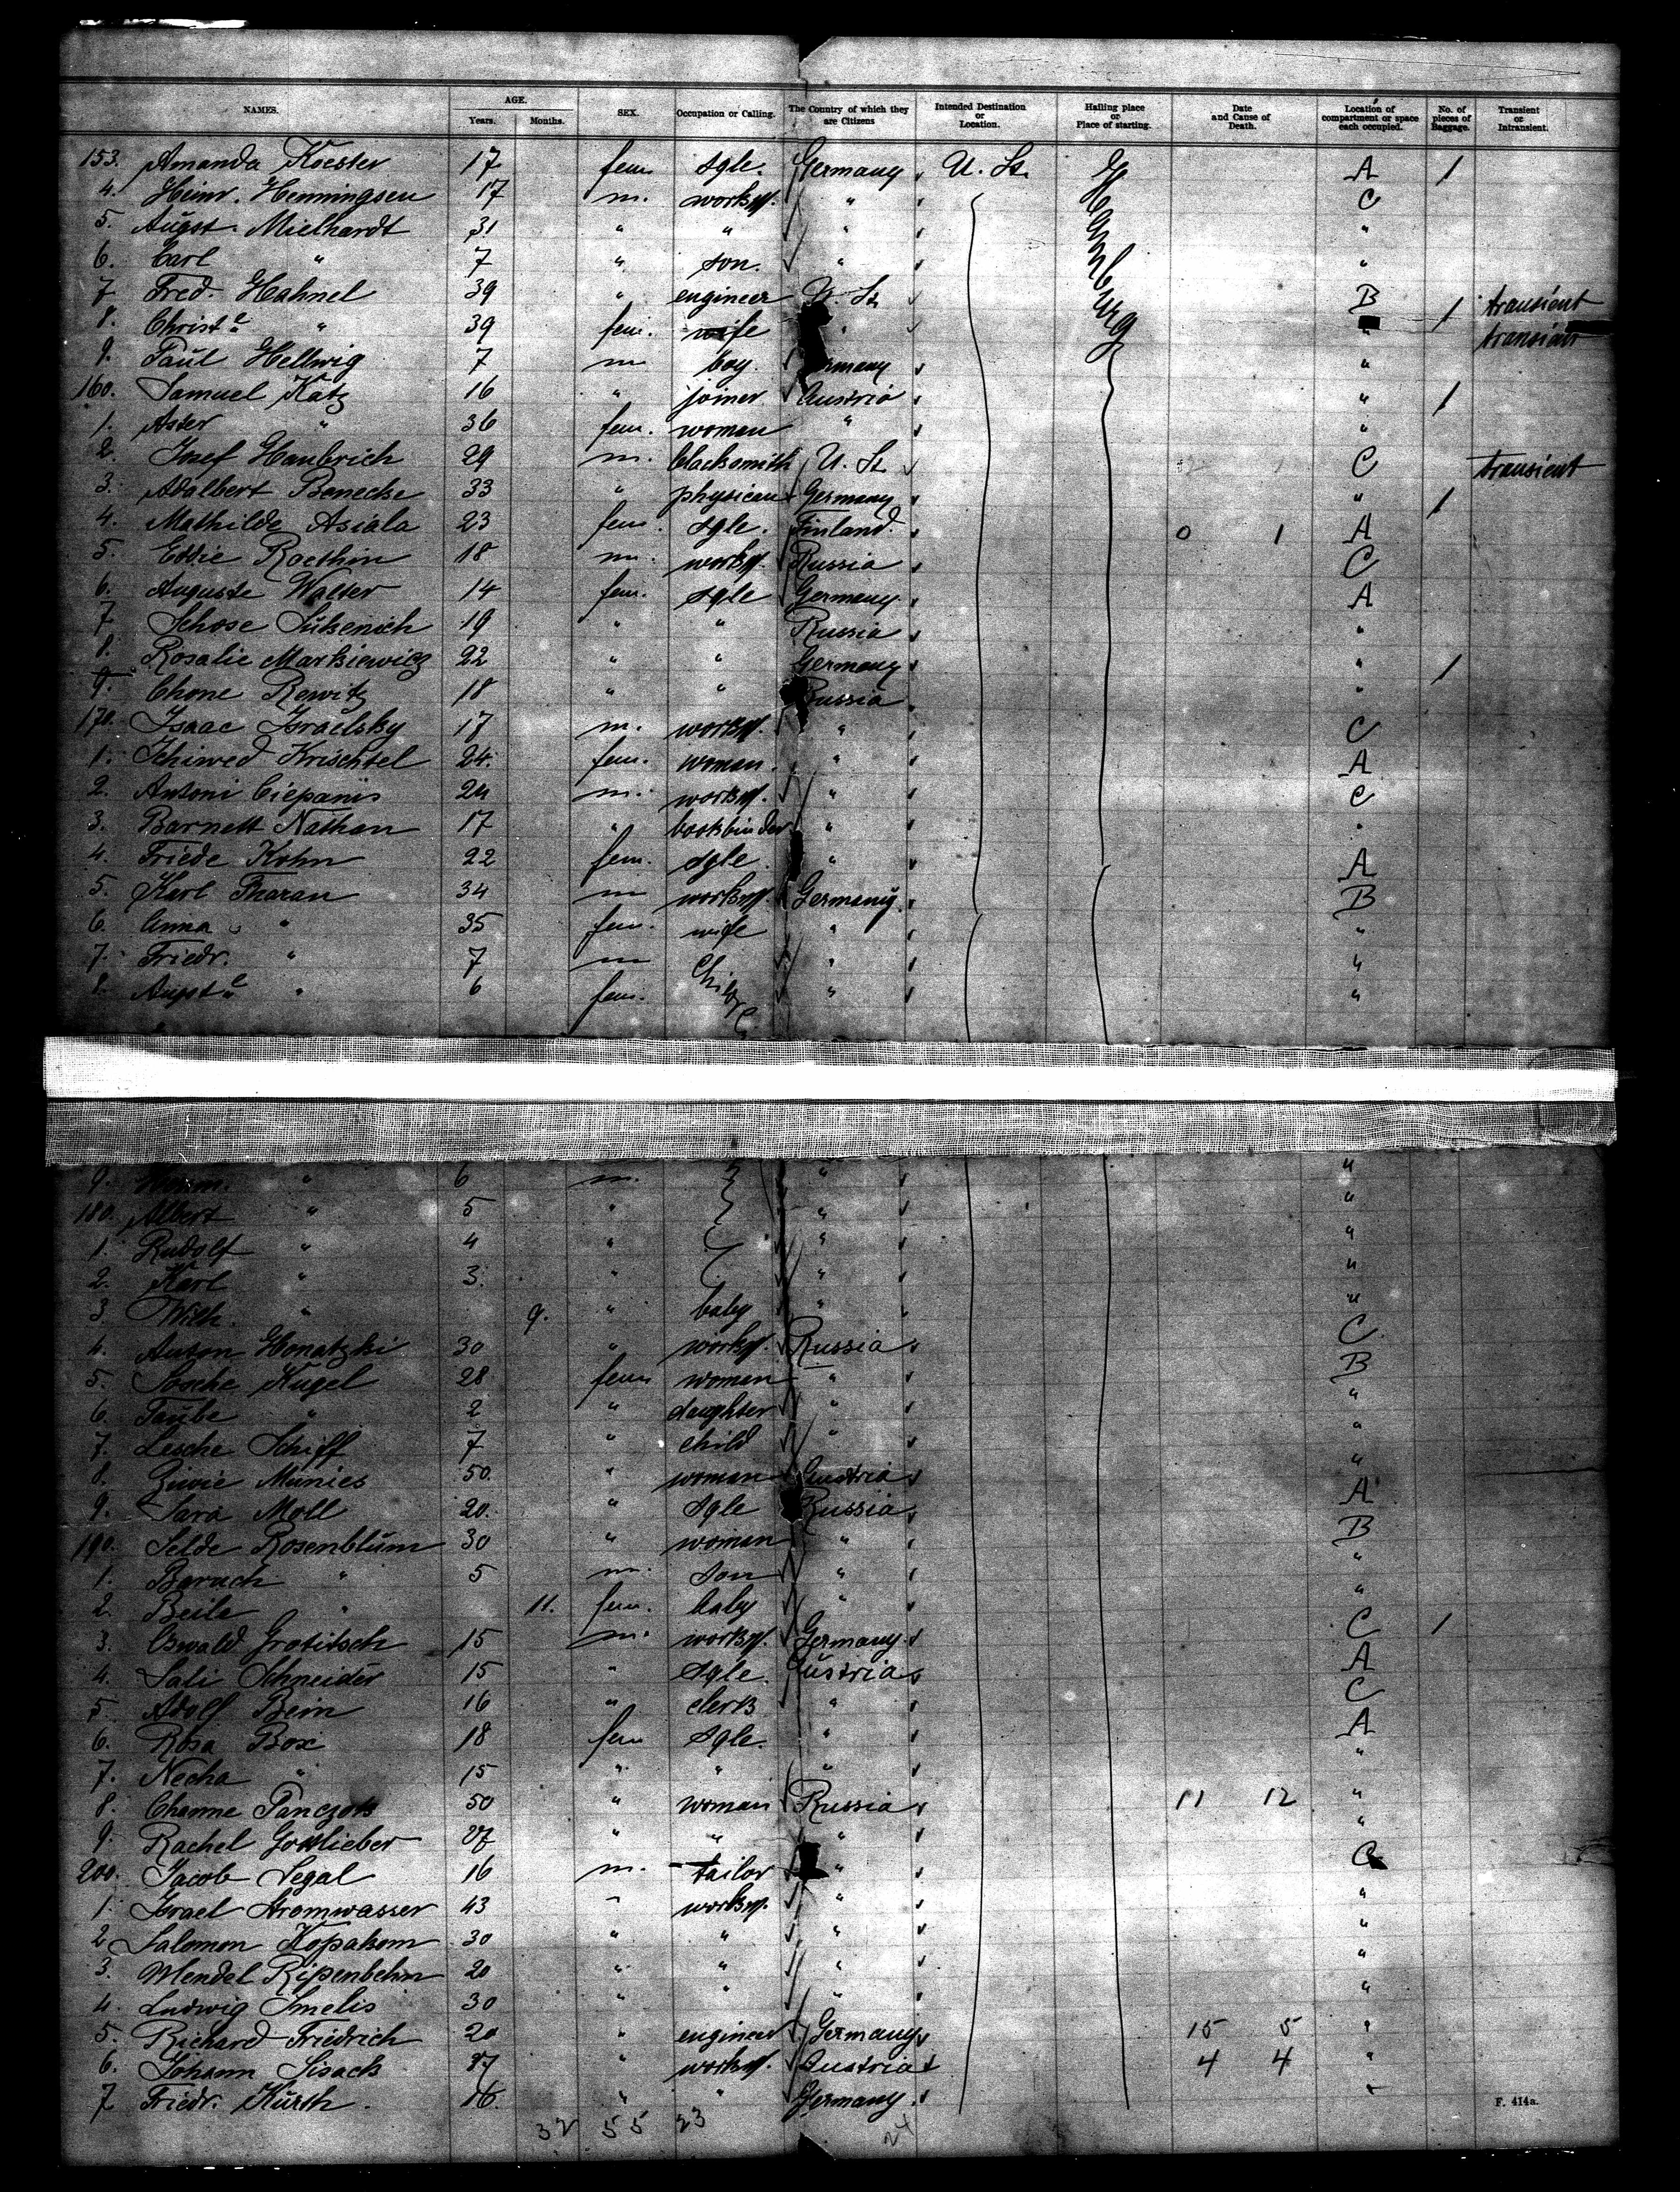 NAMES. AGE. Years. Months. SEX. Occupation or Calling. The Country of which they are Citizens Intended Destination or Location. Hailing place or Place of starting. Date and Cause of Death. Location of compartment or space each occupied. No. of pieces of Baggage. Transient or Intransient.
153. Amanda Koester 17 fem. sgle. Germany U. St. Hamburg A 1
4. Heinr. Henningsen 17 m. workm. " C
5. August Mielhardt 31 " " " "
6. Carl " 7 " son. " "
7 Fred. Hahnel 39 " engineer U. St. B 1 transient
8. Christe " 39 fem. wife " " transient
9. Paul Hellwig 7 m boy. Germany "
160. Samuel Katz 16 " joiner Austria " 1
1. Aster " 36 fem. woman " "
2. Josef Haubrich 29 m. blacksmith U. St. C transient
3. Adalbert Benecke 33 " physician Germany " 1
4. Mathilde Asiala 23 fem. sgle. Finland 0 1 A
5. Eddie Roethin 18 m. workm. Russia C
6. Auguste Walter 14 fem. sgle Germany A
7 Schose 19 " " Russia "
8. Rosalie Markiewicz 22 " " Germany " 1
9. Chone Rewitz 18 " " Russia "
170. Isaac Israelsky 17 m. workm. " C
1. Krischtel 24. fem. woman. " A
2. Antoni Ciepanis 24 m. workm. " C
3. Barnett Nathan 17 " bookbinder " "
4. Friede Kohn 22 fem. sgle. " A
5. Karl Tharan 34 m workm. Germany B
6. Anna " 35 fem. wife " "
7. Friedr. " 7 m childre " "
8. Augste " 6 fem. " "
9. " 6 m. " "
180. Albert " 5 " " "
1. Rudolf " 4 " " "
2. Karl " 3. " " "
3 Wilh. " 9. " baby " "
4. Anton Honatzki 30 " workm. Russia C
5. Sosche Kugel 28 fem woman " B
6. Taube " 2 " daughter " "
7. Lesche Schiff 7 " child " "
8. Ziwie Munies 50. " woman Austria "
9. Sara Moll 20. " sgle Russia A
190. Selde Rosenblum 30 " woman " B
1. Baruch " 5 m. son " "
2. Beile " 11. fem. baby " "
3. Oswald Grotitsch 15 m. workm. Germany C 1
4. Sali Schneider 15 " sgle. Austria A
5 Adolf Bein 16 " clerk " C
6. Rosa Box 18 fem sgle. " A
7. Necha " 15 " " " "
8. Channe Panczok 50 " woman Russia 11 12 "
9. Rachel Gottlieber 27 " " " "
200. Jacob Segal 16 m. tailor " C
1 Israel Stromwasser 43 " workm. " "
2 Salomon 30 " " " "
3. Mendel 20 " " " "
4. Ludwig Smelis 30 " " " "
5. Richard Friedrich 20 " engineer Germany 15 5 "
6. Johann Sisack 27 " workm. Austria 4 4 "
7 Friedr. Kurth. 16. " " Germany "
32 55 23 24
F. 414a.